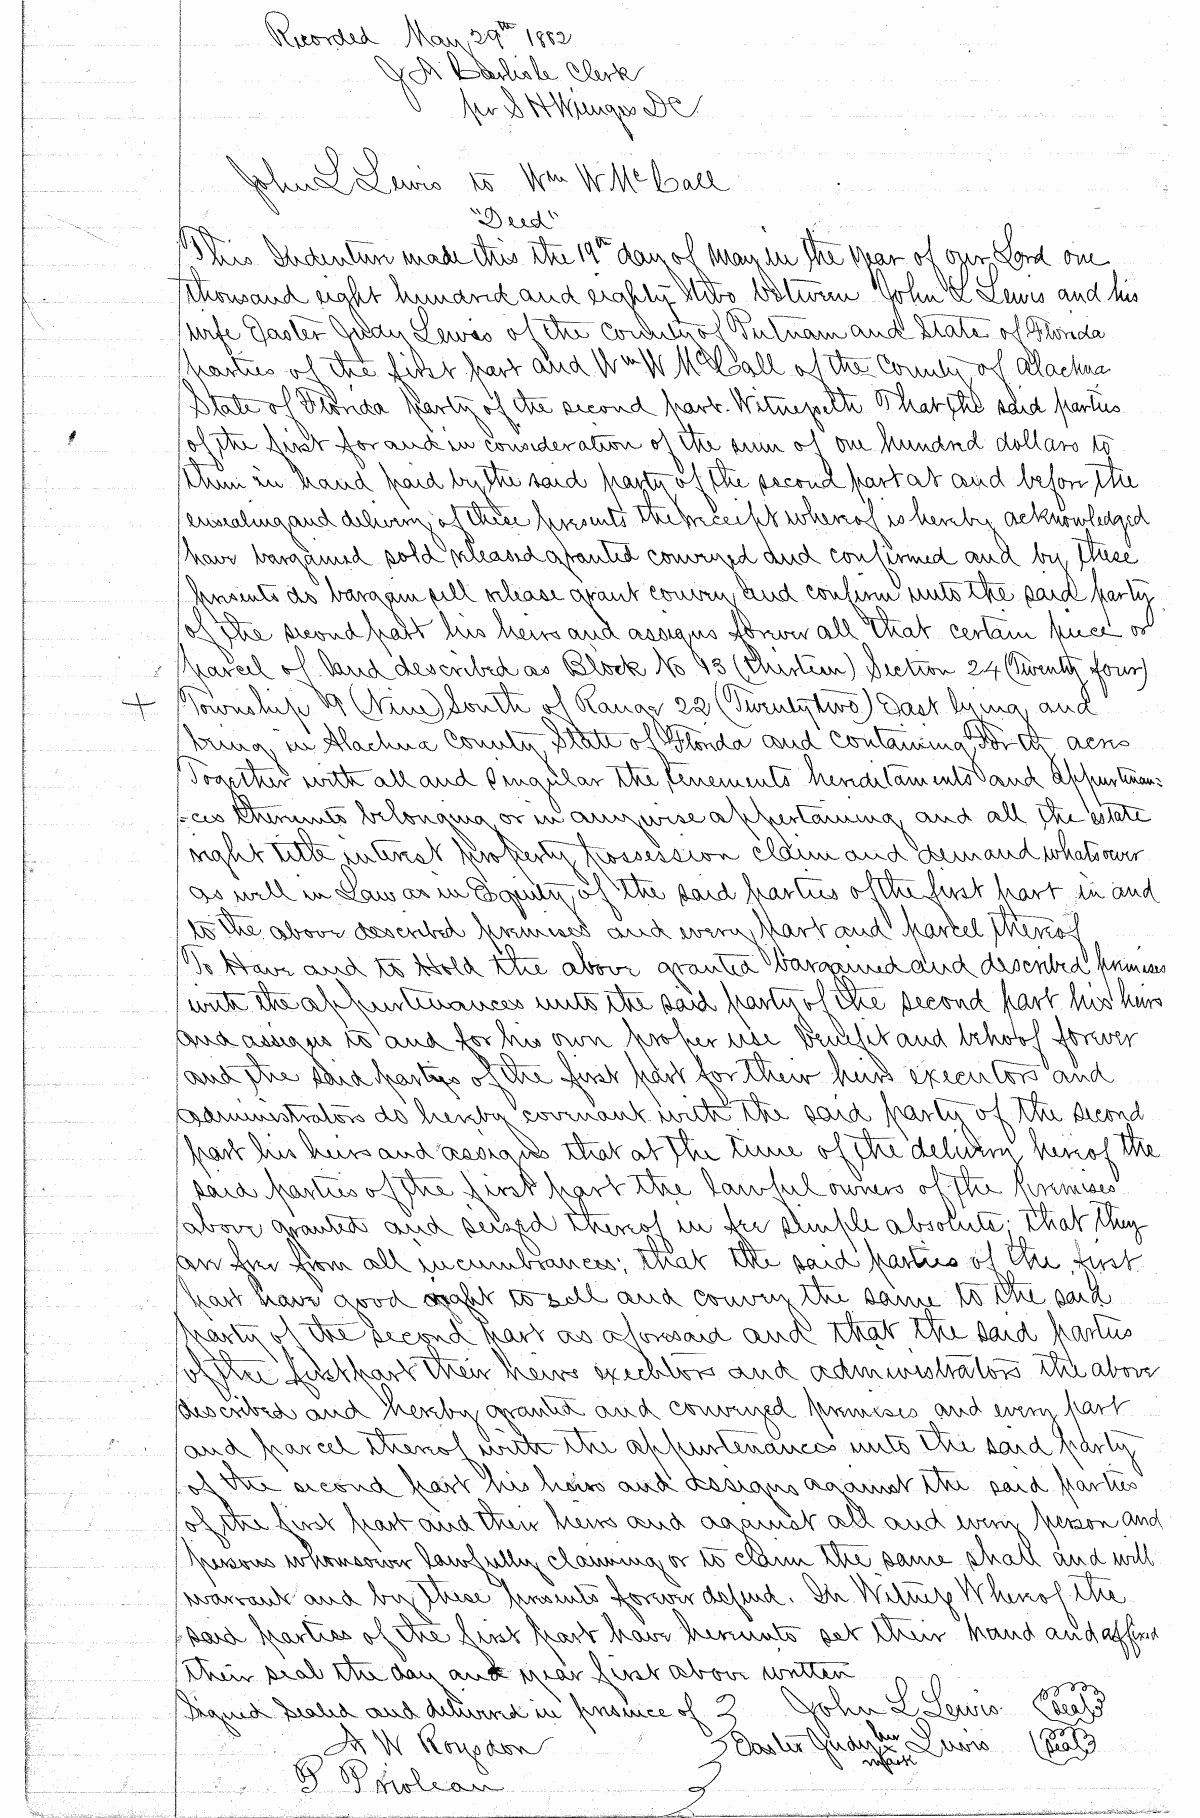 Recorded May 29th 1882
J A Carlisle Clerk
per S H Wienges DC
John L Lewis to Wm W McCall
"Deed"
This Indenture made this the 19th day of May in the year of our Lord one
thousand eight hundred and eighty two between John L Lewis and his
wife Easter Judy Lewis of the county of Putnam and State of Florida
parties of the first part and Wm W McCall of the County of Alachua
State of Florida party of the second part. Witnesseth That the said parties
of the first for and in consideration of the sum of one hundred dollars to
them in hand paid by the said party of the second part at and before the
ensealing and delivery of these presents the receipt whereof is hereby acknowledged
have bargained sold released granted conveyed and confirmed and by these
presents do bargain sell release grant convey and confirm unto the said party
of the second part his heirs and assigns forever all that certain piece or
parcel of land described as Block No 13 (thirteen) Section 24 (Twenty four)
+ Township 9 (Nine) South of Range 22 (Twenty two) East lying and
being in Alachua County State of Florida and containing Forty acres
Together with all and singular the tenements hereditaments and appurtenan=
=ces thereunto belonging or in any wise appertaining and all the estate
right title interest property possession claim and demand whatsoever
as well in Law as in Equity of the said parties of the first part in and
to the above described premises and every part and parcel thereof
To Have and to Hold the above granted bargained and described premises
with the appurtenances unto the said party of the second part his heirs
and assigns to and for his own proper use benefit and behoof forever
and the said parties of the first part for their heirs executors and
administrators do hereby covenant with the said party of the second
part his heirs and assigns that at the time of the delivery hereof the
said parties of the first part the lawful owners of the premises
above granted and seized thereof in fee simple absolute; that they
are free from all incumbrances; that the said parties of the first
part have good right to sell and convey the same to the said
party of the second part as aforesaid and that the said parties
of the first part their heirs executors and administrators the above
described and hereby granted and conveyed premises and every part
and parcel thereof with the appurtenances unto the said party
of the second part his heirs and assigns against the said parties
of the first part and their heirs and against all and every person and
persons whomsoever lawfully claiming or to claim the same shall and will
warrant and by these presents forever defend. In Witness Whereof the
said parties of the first part have hereunto set their hand and affixed
their seal the day and year first above written
Signed Sealed and delivered in presence of John L Lewis (Seal)
A W Roysdon Easter Judy her mark Lewis (Seal)
P Priolean